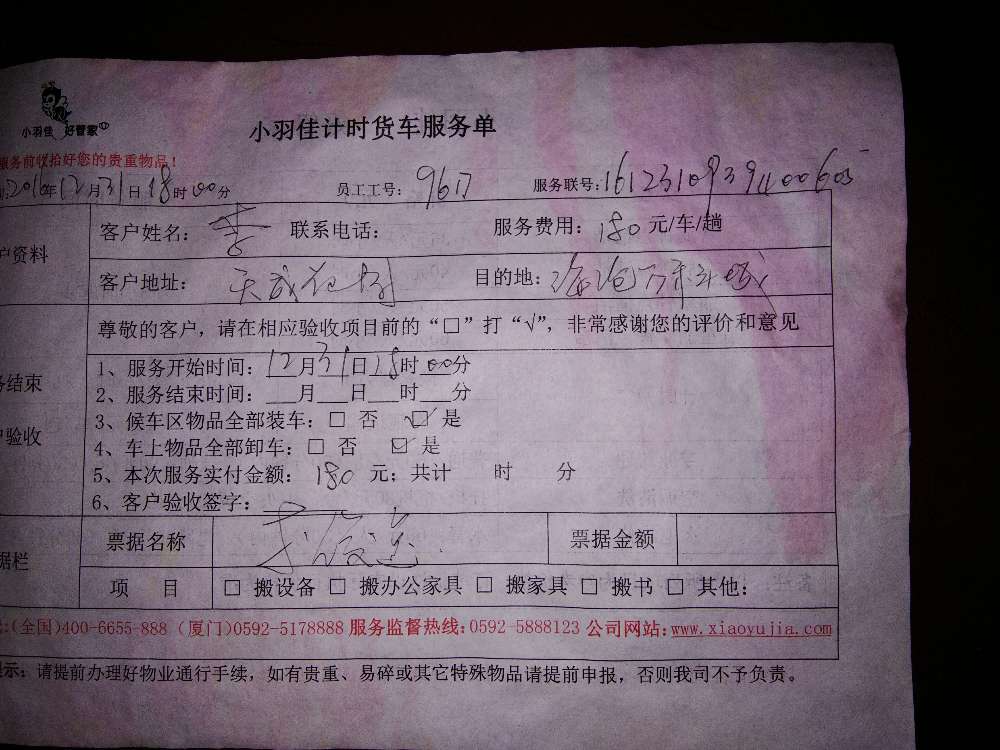 小羽佳 好管家
小羽佳计时货车服务单
服务前收拾好您的贵重物品！
2016年12月31日18时00分 员工工号：9617 服务联号：161231093940060
户资料 客户姓名：李 联系电话： 服务费用：180元/车/趟
客户地址：天成花园 目的地：
尊敬的客户，请在相应验收项目前的“□”打“√”，非常感谢您的评价和意见
务结束
户验收
1、服务开始时间：12月31日18时00分
2、服务结束时间：___月___日___时___分
3、候车区物品全部装车：□ 否 ☑ 是
4、车上物品全部卸车：□ 否 ☑ 是
5、本次服务实付金额：180元；共计 时 分
6、客户验收签字：
据栏 票据名称 票据金额
项 目 □ 搬设备 □ 搬办公家具 □ 搬家具 □ 搬书 □ 其他：
:(全国)400-6655-888（厦门)0592-5178888 服务监督热线:0592-5888123 公司网站:www.xiaoyujia.com
提示：请提前办理好物业通行手续，如有贵重、易碎或其它特殊物品请提前申报，否则我司不予负责。